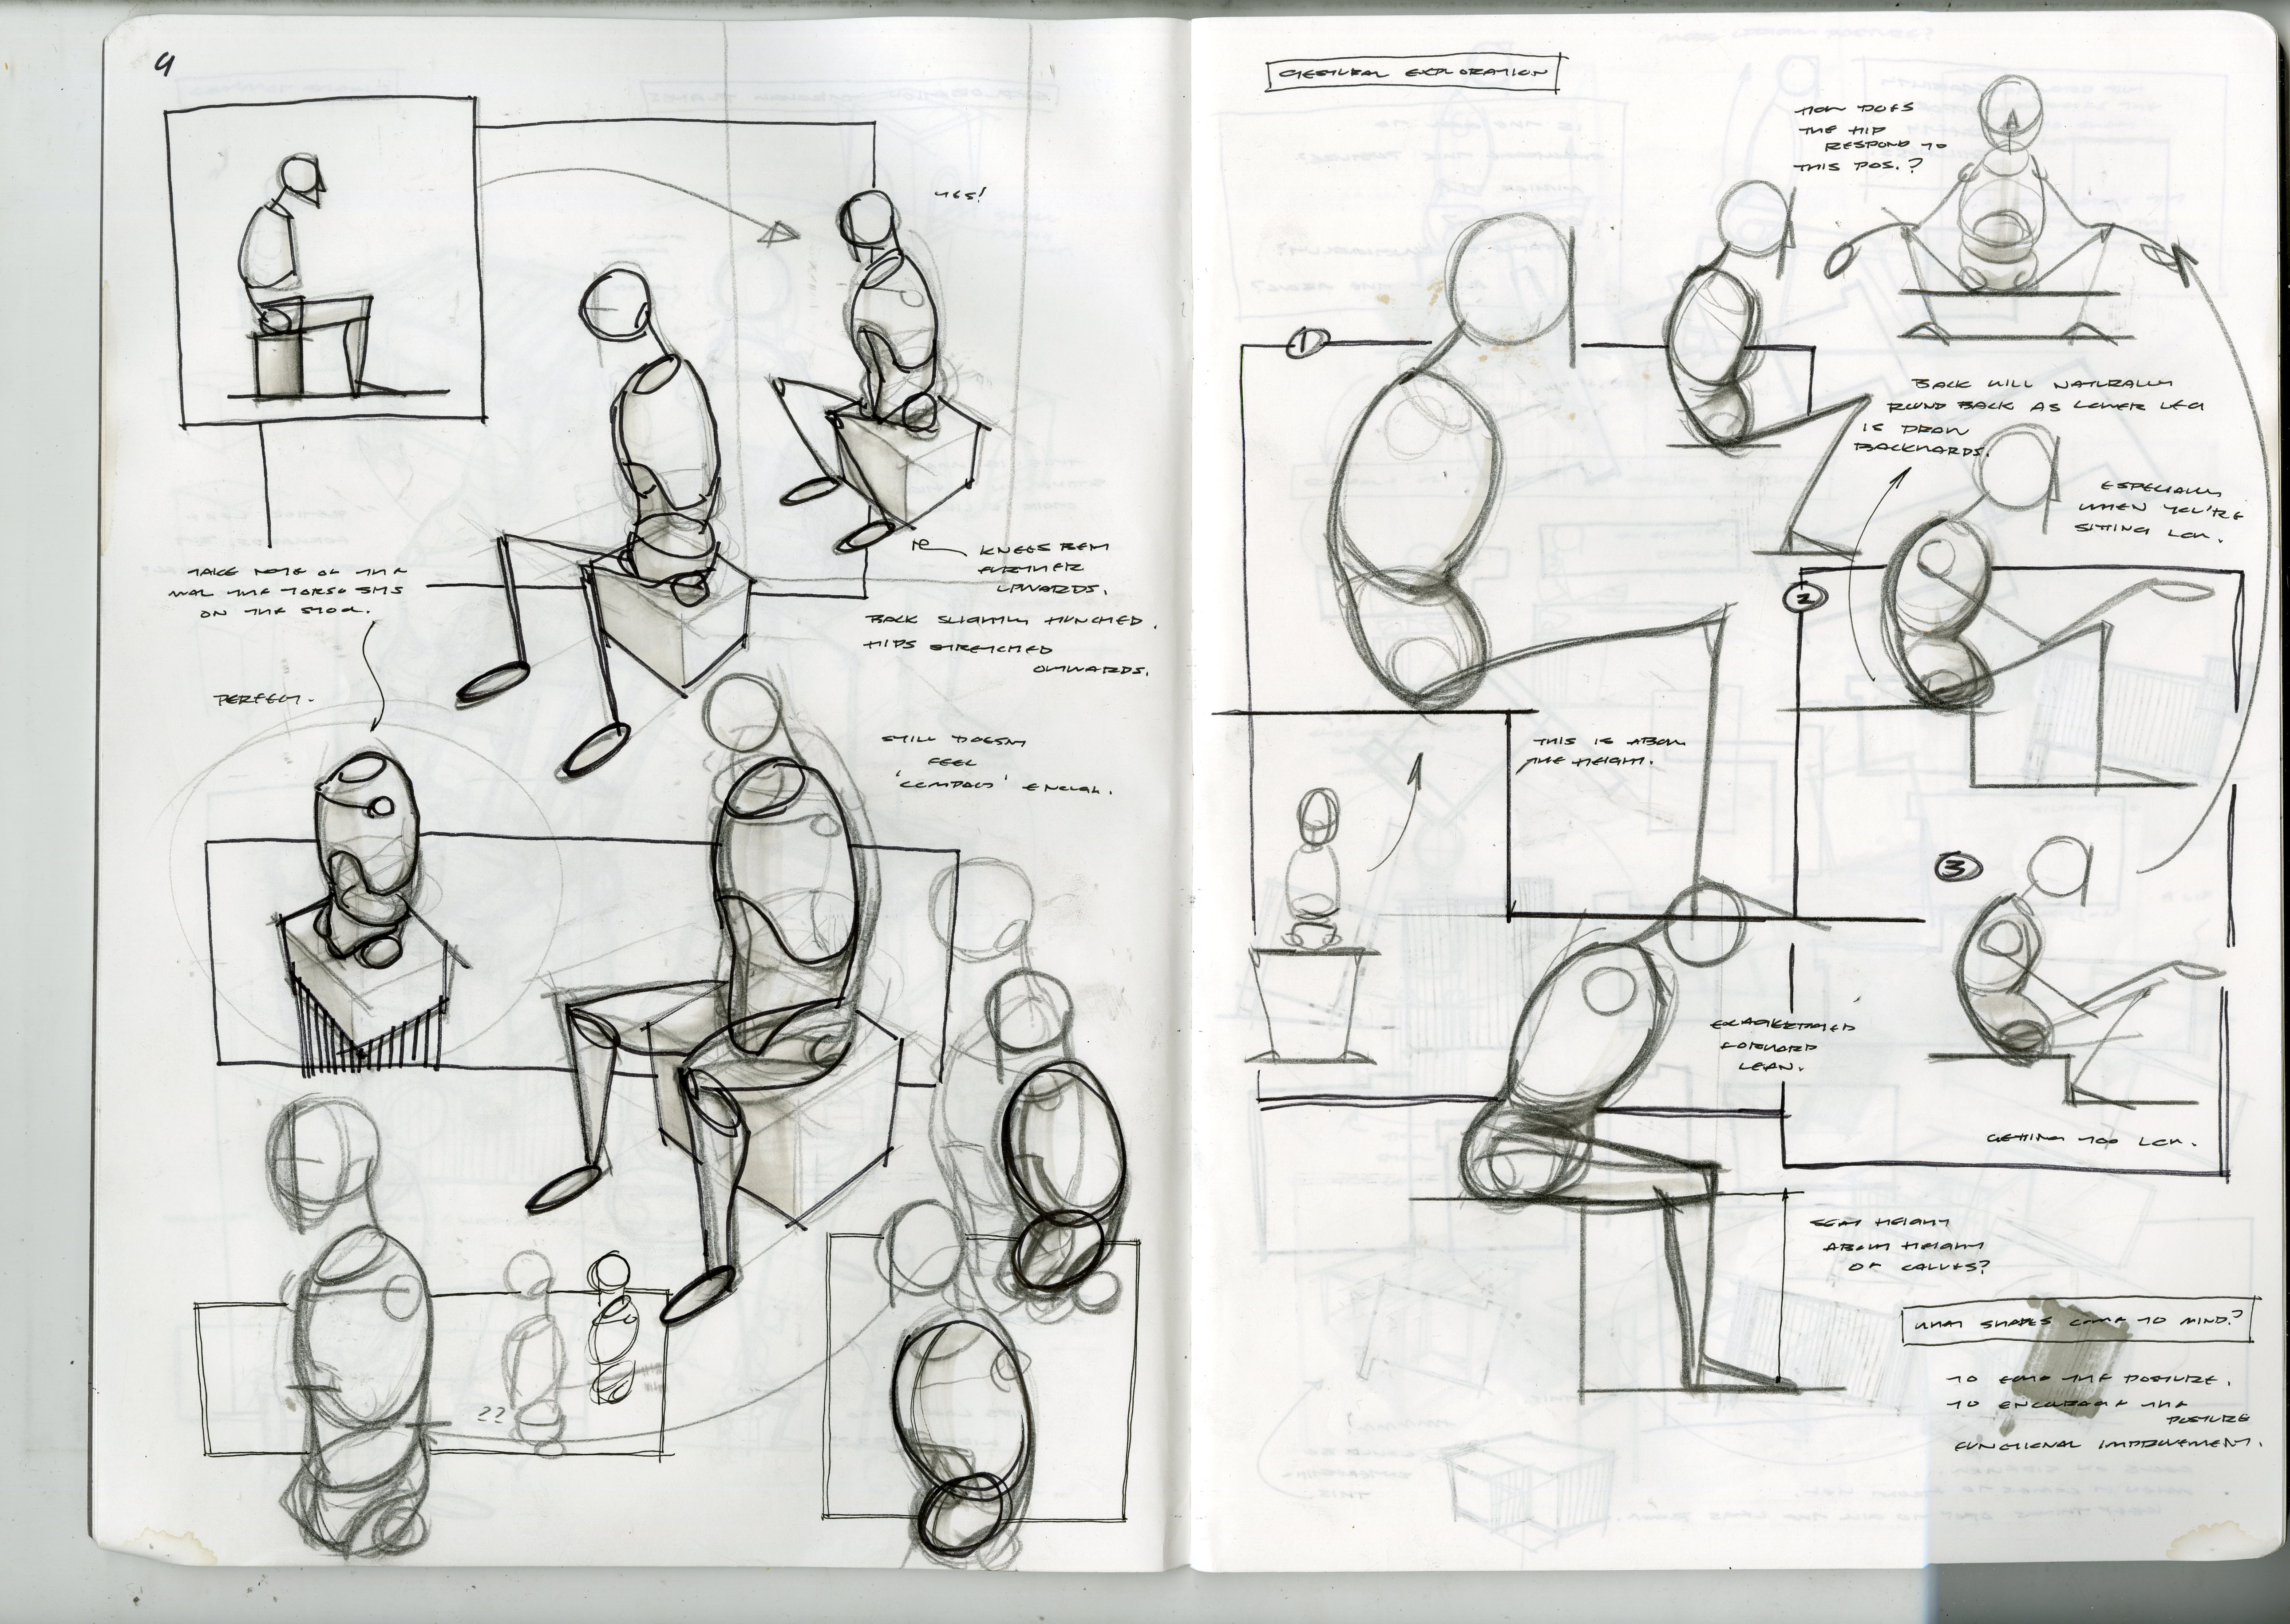 9
YES!
KNEES BEM
FURTHER
UPWARDS.
BACK SLIGHTLY HUNCHED.
HIPS STRETCHED
OUTWARDS.
TAKE NOTE OF THE
WAY THE TORSO SITS
ON THE STOOL.
PERFECT.
STILL DOESN'T
FEEL
'COMPACT' ENOUGH.
??
GESTURAL EXPLORATION
HOW DOES
THE HIP
RESPOND TO
THIS POS.?
1
BACK WILL NATURALLY
ROUND BACK AS LOWER LEG
IS DRAWN
BACKWARDS.
ESPECIALLY
WHEN YOU'RE
SITTING LOW.
2
THIS IS ABOUT
THE HEIGHT.
3
EXAGGERATED
FORWARD
LEAN.
GETTING TOO LOW.
SEAT HEIGHT
ABOUT HEIGHT
OF CALVES?
WHAT SHAPES COME TO MIND?
TO ECHO THE POSTURE.
TO ENCOURAGE THE
POSTURE
FUNCTIONAL IMPROVEMENT.